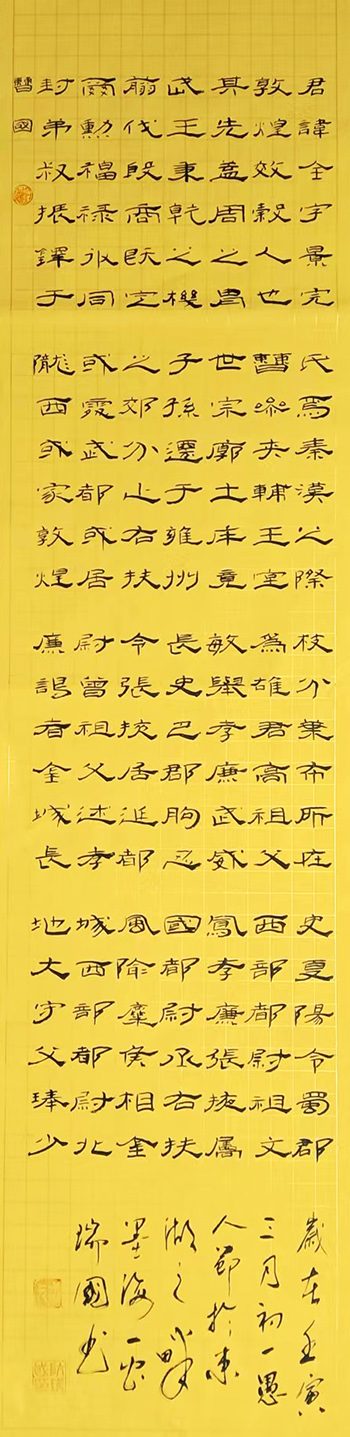 君諱全字景完
敦煌效穀人也
其先蓋周之胄
武王秉乾之機
翦伐殷商既定
爾勳福祿攸同
封弟叔振鐸于
曹國
氏焉秦漢之際
曹參夾輔王室
世宗廓土斥竟
子孫遷于雍州
之郊分止右扶
或處武都或居
隴西或家敦煌
枝分葉布所在
為雄君高祖父
敏舉孝廉武威
長史巴郡朐忍
令張掖居延都
尉曾祖父述孝
廉謁者金城長
史夏陽令蜀郡
西部都尉祖父
鳳孝廉張掖屬
國都尉丞右扶
風隃麋侯相金
城西部都尉北
地大守父琫少
歲在壬寅
三月初一愚
人節於東
湖之畔
墨海一粟
瑞國書